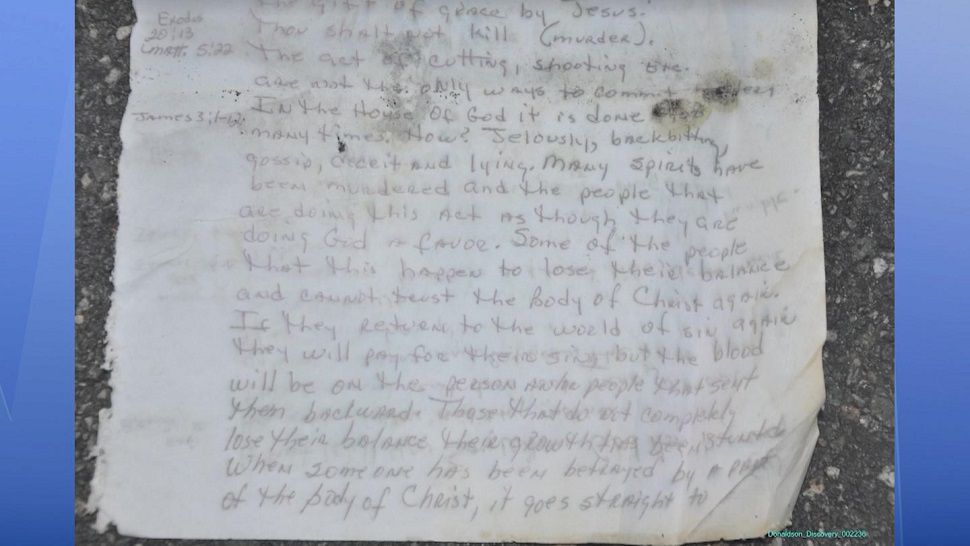 the gift of grace by Jesus.
Exodus
20:13
Thou shalt not kill (murder).
Matt. 5:22
The act of cutting, shooting etc.
are not the only ways to commit
In the House of God it is done
James 3:1-12
many times. How? Jelously, backbitting,
gossip, deceit and lying. Many spirits have
been murdered and the people that
are doing this act as though they are
doing God a favor. Some of the people
that this happen to lose their balance
and cannot trust the Body of Christ again.
If they return to the world of sin again
they will pay for their sins, but the blood
will be on the person and/or people that sent
them backward. Those that do not completely
lose their balance their growth has been stunted
When someone has been betrayed by a part
of the body of Christ, it goes straight to
Donaldson_Discovery_002236